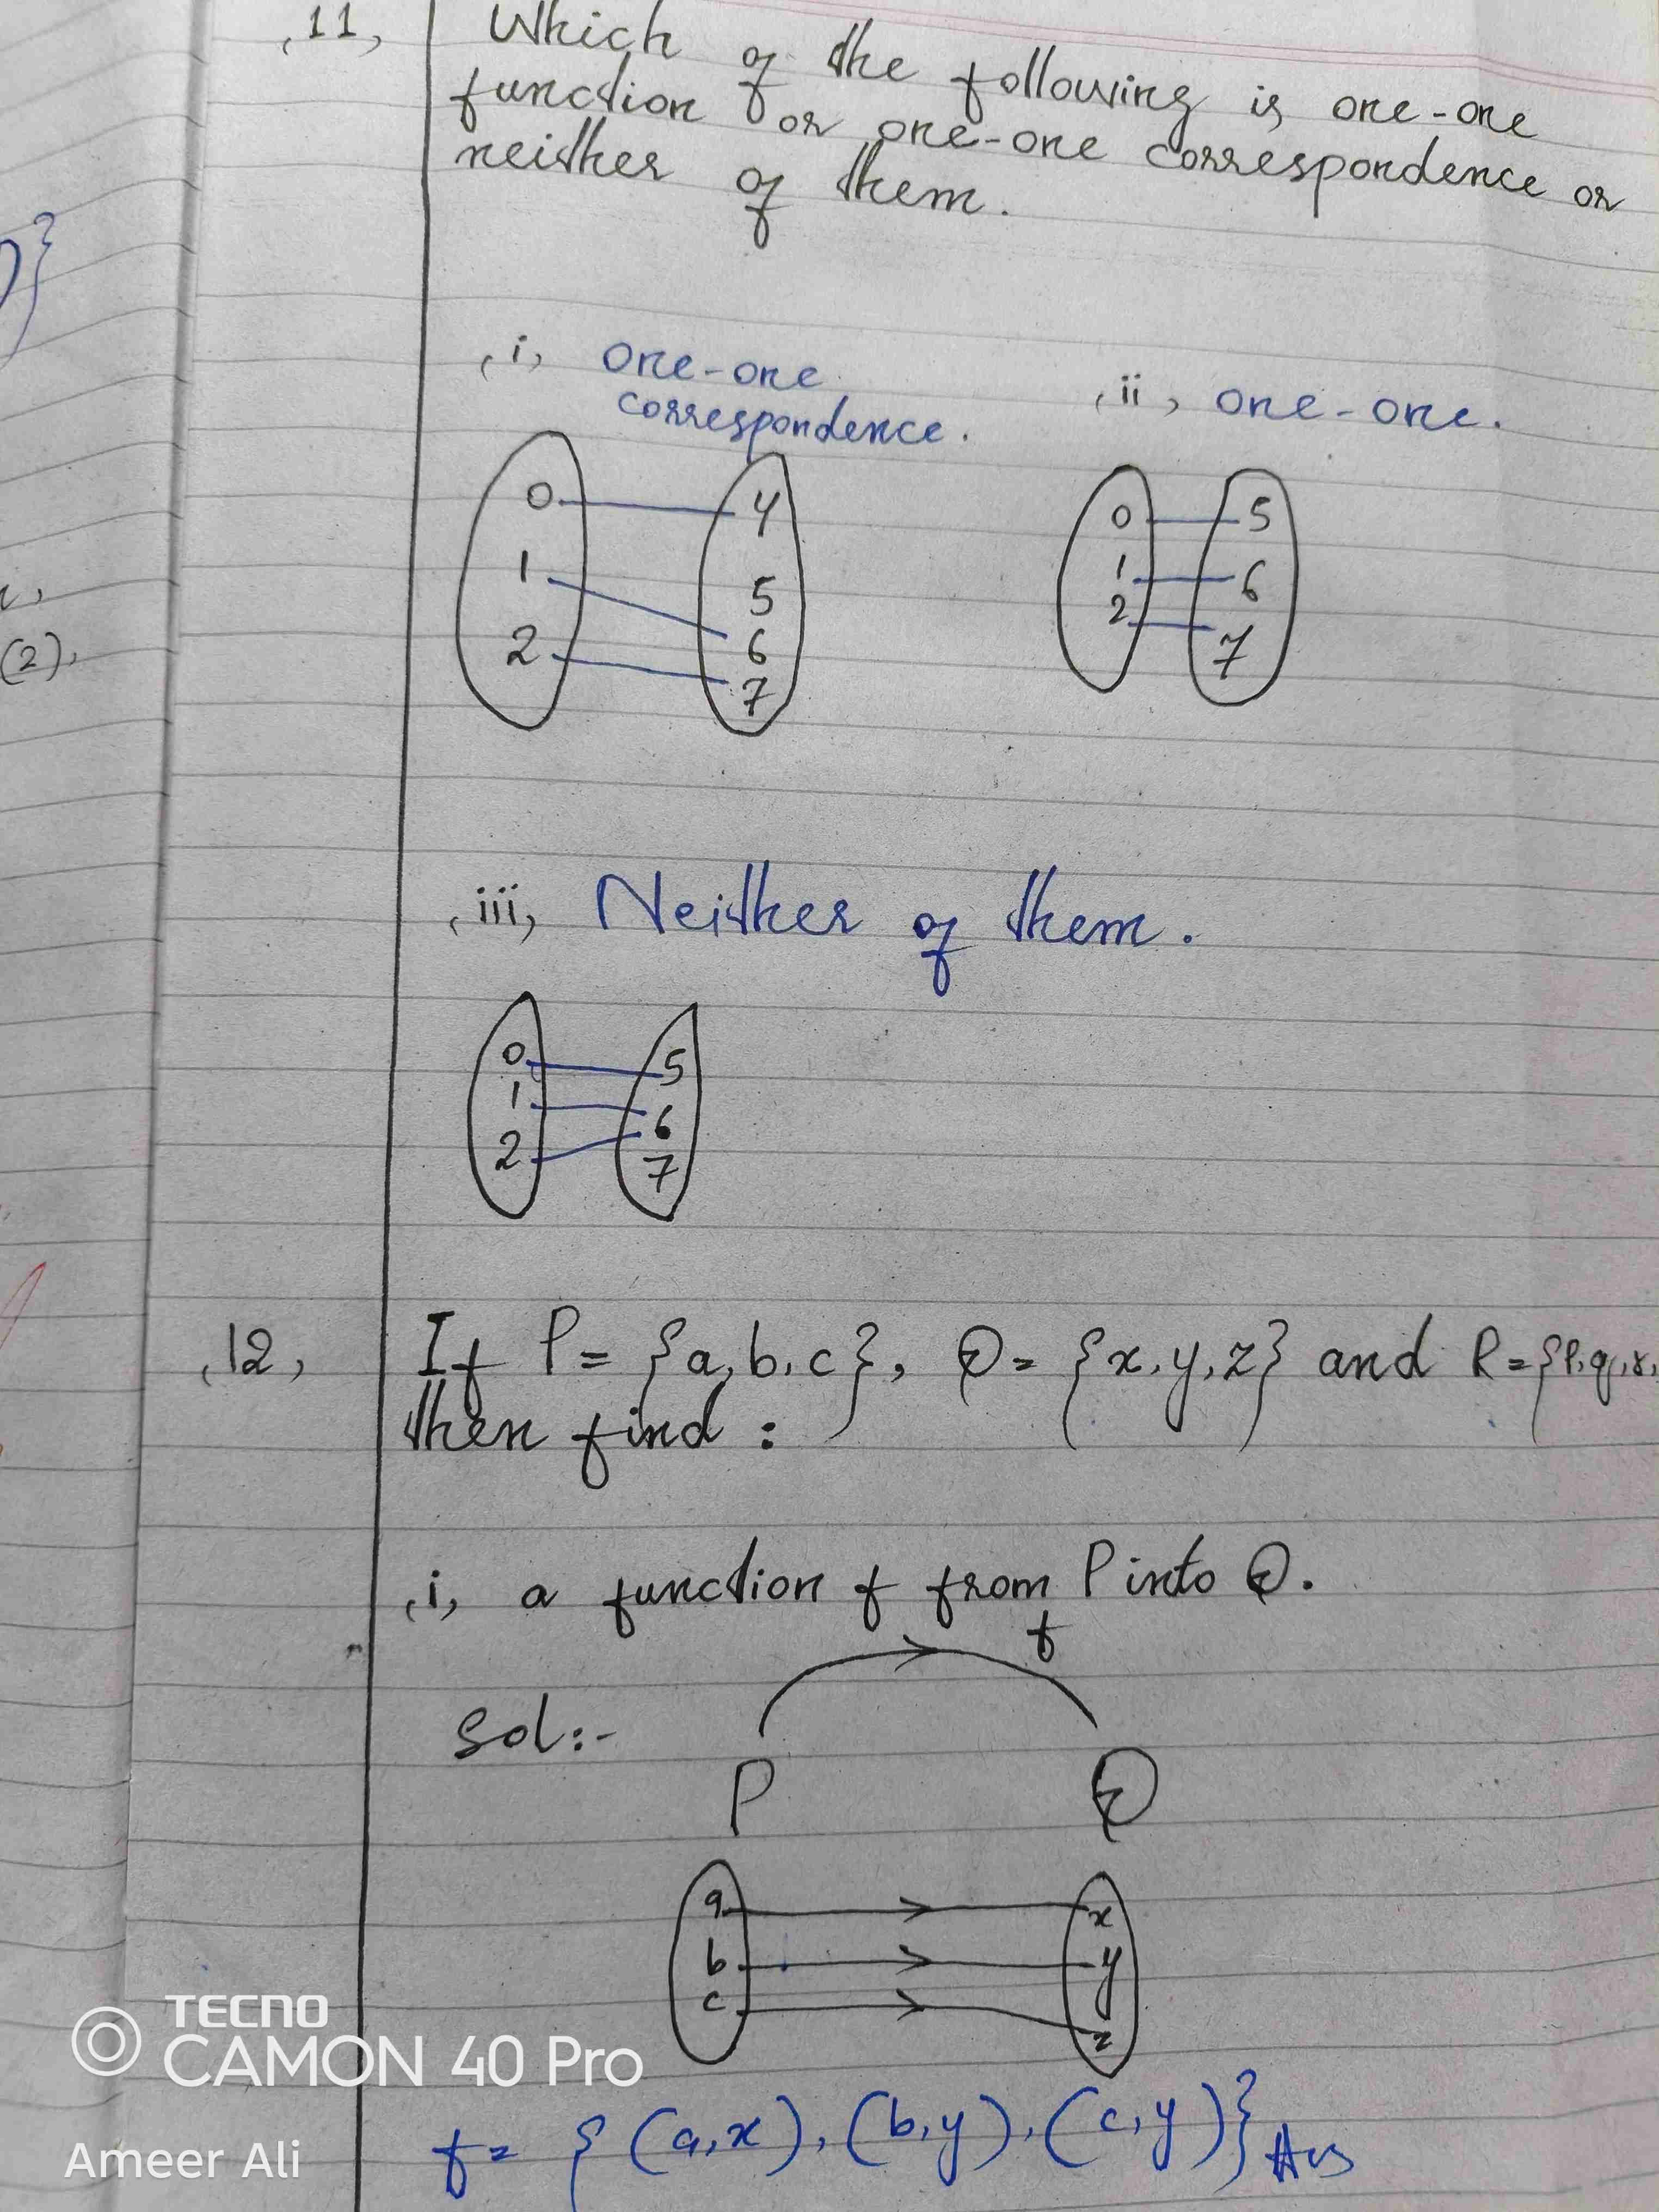 (11)
Which of the following is one-one
function or one-one correspondence or
neither of them.
(i) one-one
correspondence.
(ii) one-one.
0 4
1 5
2 6
7
0 5
1 6
2 7
(iii) Neither of them.
0 5
1 6
2 7
(12) If P = {a, b, c}, Q = {x, y, z} and R = {p, q, r,
then find :
(i) a function f from P into Q.
f
Sol:-
P Q
a x
b y
c z
f = { (a, x), (b, y), (c, y)} Ans
}
(2),
TECNO
CAMON 40 Pro
Ameer Ali